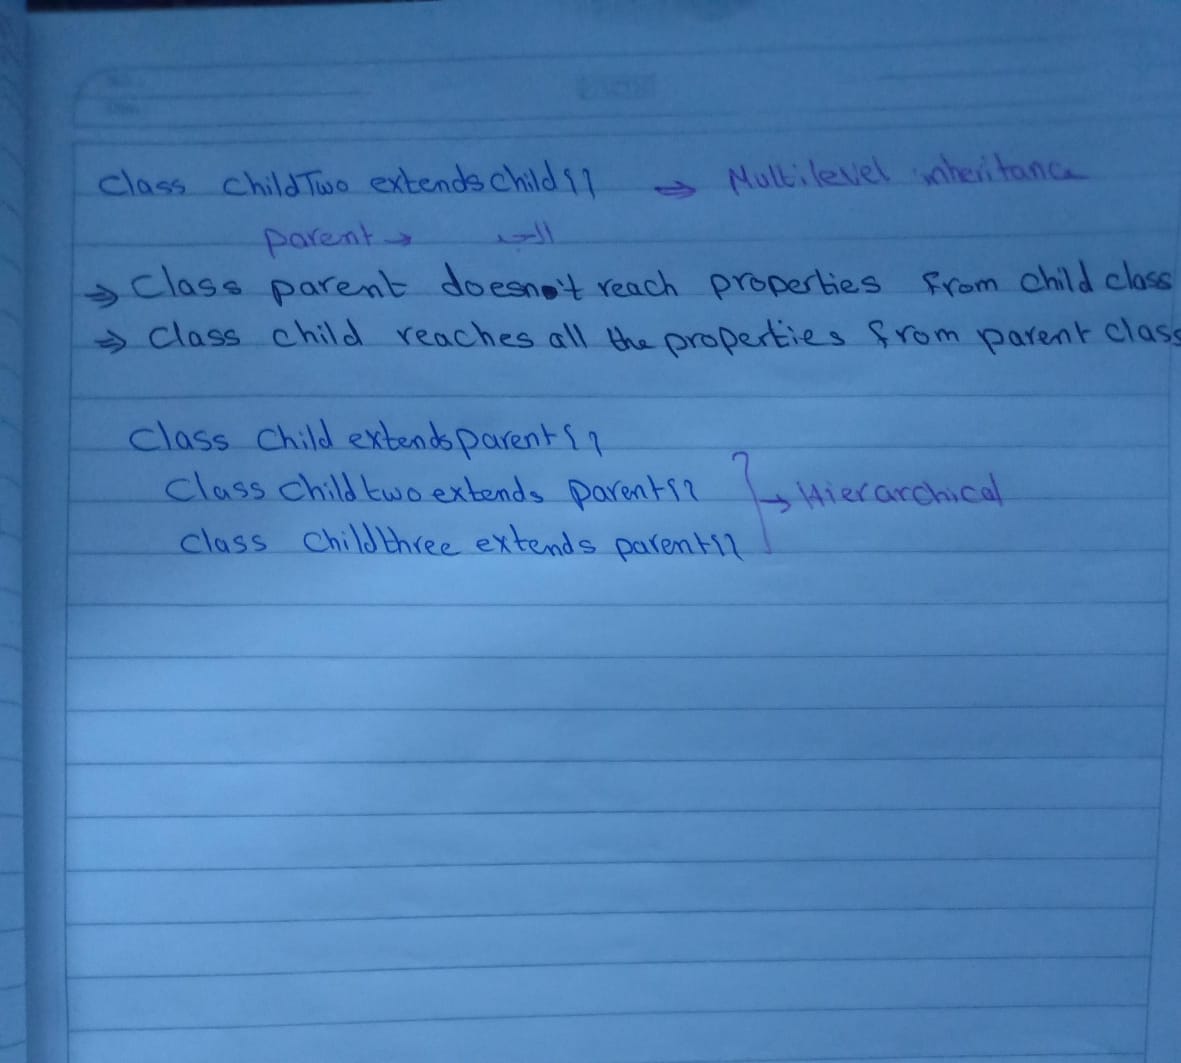 class childTwo extends child{} ⇒ Multilevel inheritance
parent → الاب
⇒ Class parent doesn't reach properties from child class
⇒ Class child reaches all the properties from parent class
Class child extends parent{}
Class child two extends parent{}
Class child three extends parent{}
→ Hierarchical